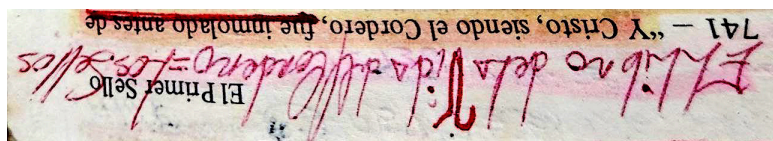 El Primer Sello
El Libro de la Vida del Cordero = Los Sellos
741 – “Y Cristo, siendo el Cordero, fue inmolado antes de